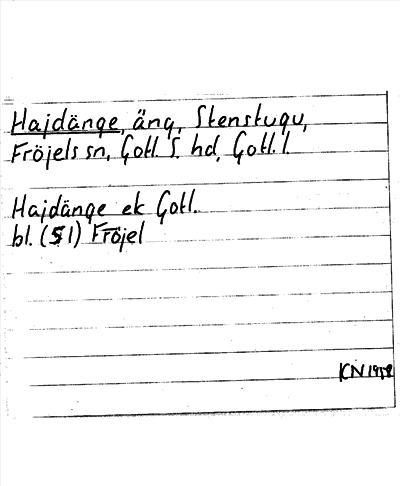 Hajdänge, äng, Stenstugu,
Fröjels sn, Gotl. S. hd, Gotl. l.
Hajdänge ek Gotl.
bl. (S1) Fröjel
KN 1958